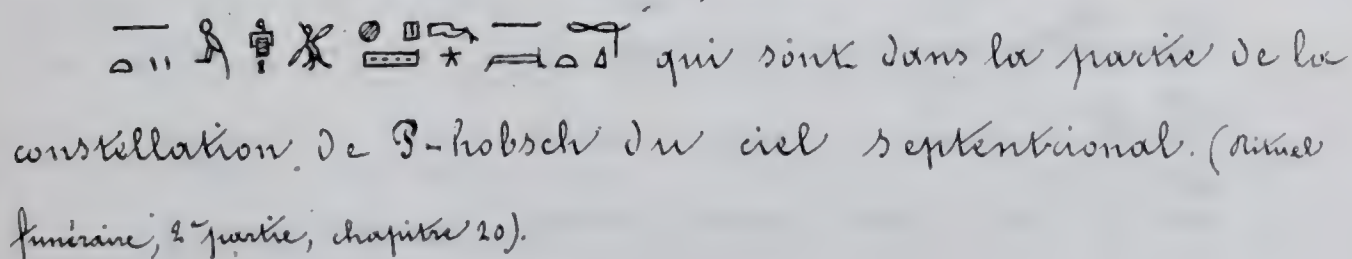 qui sont dans la partie de la
constellation de P-hobsch du ciel septentrional. (Rituel
funéraire, 2e partie, chapitre 20).